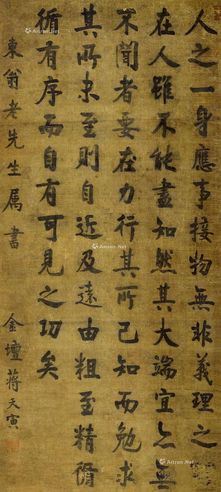 人之一身應事接物無非義理之所
在人雖不能盡知然其大端宜亦無
不聞者要在力行其所已知而勉求
其所未至則自近及遠由粗至精循
循有序而自有可見之功矣
東翁老先生属書
金壇蔣天寅